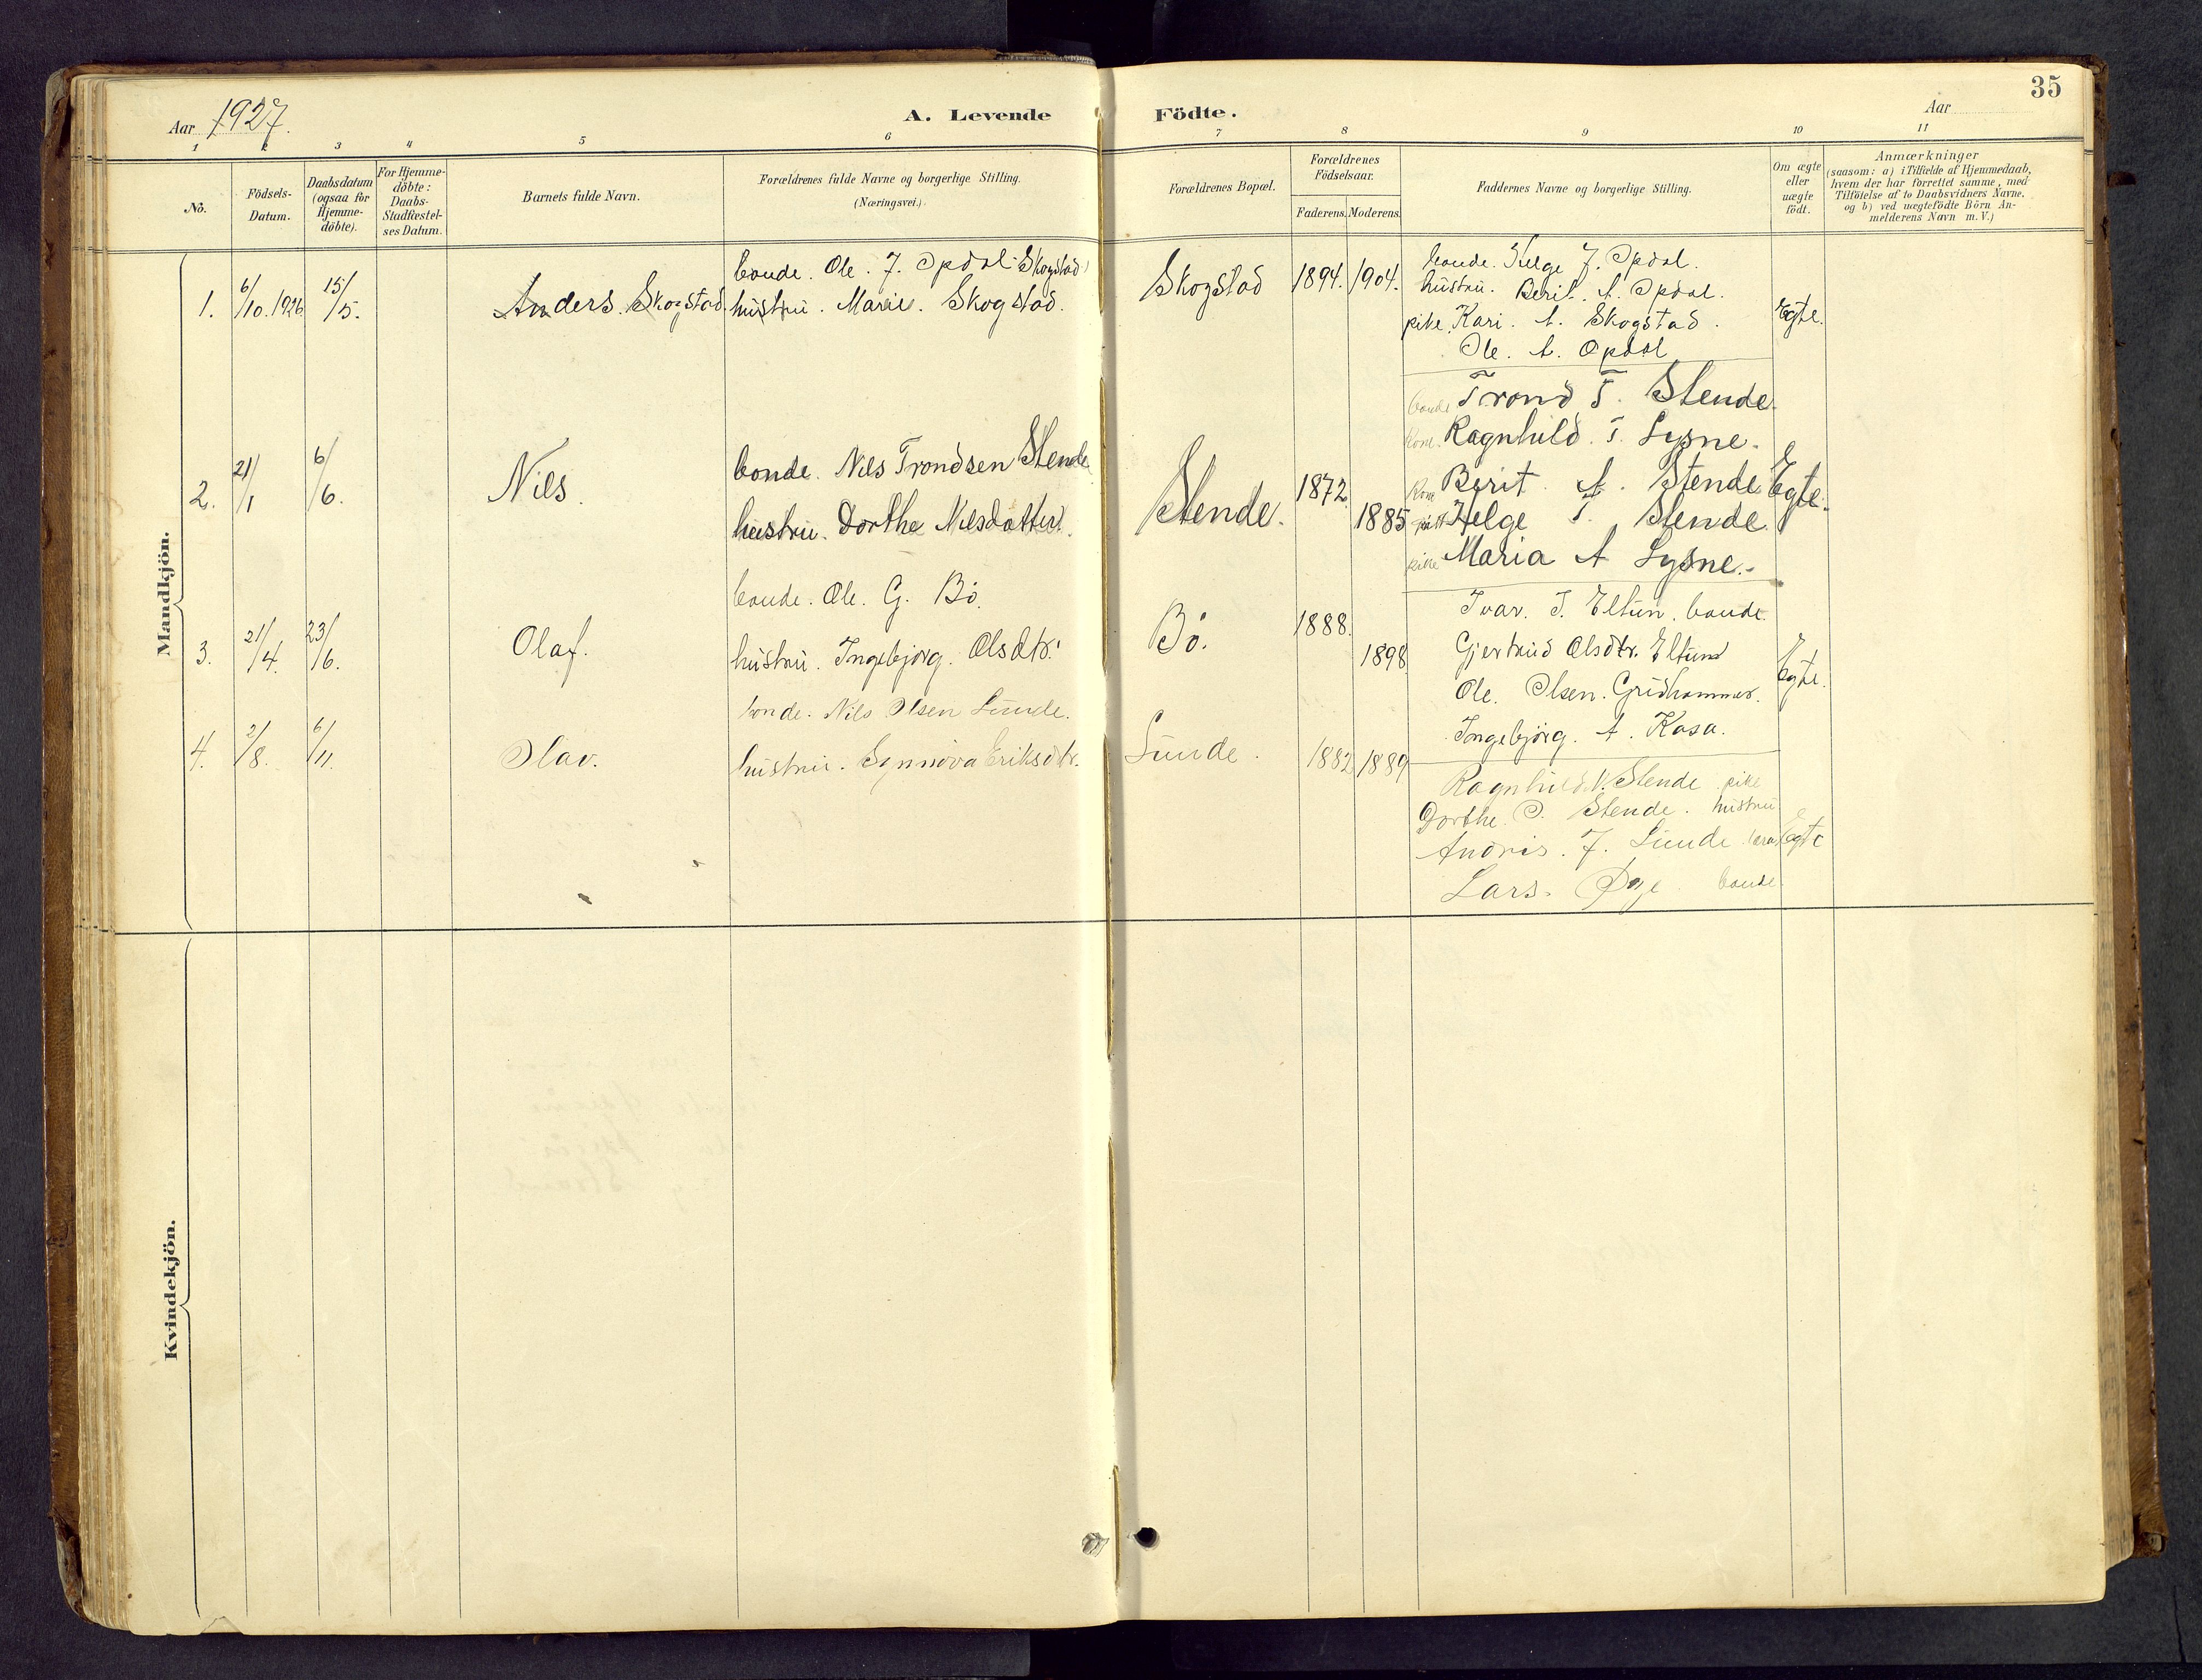 35
Aar 1927.
A. Levende Födte.
Aar
1 2 3 4 5 6 7 8 9 10 11
No.
Födsels-
Datum.
Daabsdatum
(ogsaa for
Hjemme-
döbte).
For Hjemme-
döbte:
Daabs-
Stadfæstel-
ses Datum.
Barnets fulde Navn.
Forældrenes fulde Navne og borgerlige Stilling.
(Næringsvei.)
Forældrenes Bopæl.
Forældrenes
Födselsaar.
Faderens. Moderens.
Faddernes Navne og borgerlige Stilling.
Om ægte
eller
uægte
födt.
Anmærkninger
(saasom: a) i Tilfælde af Hjemmedaab,
hvem der har forrettet samme, med
Tilföielse af to Daabsvidners Navne.
og b) ved uægtefödte Börn An-
melderens Navn m.V.)
Mandkjön.
1. 6/10. 1926 15/5. Anders. Skogstad.
bonde. Ole. J. Opdal Skogstad
hustru. Marie. Skogstad.
Skogstad 1894. 1904.
bonde. Helge J. Opdal.
hustru. Berit. A. Opdal.
pike. Kari. A. Skogstad.
Ole. A. Opdal
Egte.
2. 21/1 6/6. Nils.
bonde. Nils Trondsen Stende
hustru. Dorthe Nilsdatter.
Stende. 1872. 1885
bonde Trond T. Stende.
kone. Ragnhild. T. Lysne.
kone Berit. A. Stende
Helge T. Stende.
pike Maria A Lysne.
Egte.
3. 21/4. 23/6. Olaf.
bonde. Ole. G. Bö.
hustru. Ingebjørg. Olsdtr.
Bö. 1888. 1898
Ivar. I. Eltun. bonde.
Gjertrud Olsdtr. Eltun
Ole. Olsen. Gridhammer.
Ingebjörg. A. Kasa.
Egte.
4. 2/8. 6/11. Olav.
bonde. Nils Olsen Lunde.
hustru. Synnöva Eriksdtr.
Lunde. 1882 1889
Ragnhild N. Stende pike
Dorthe. O. Stende. hustru
Andris. J. Lunde
Lars. Øye bonde.
Egte
Kvindekjön.